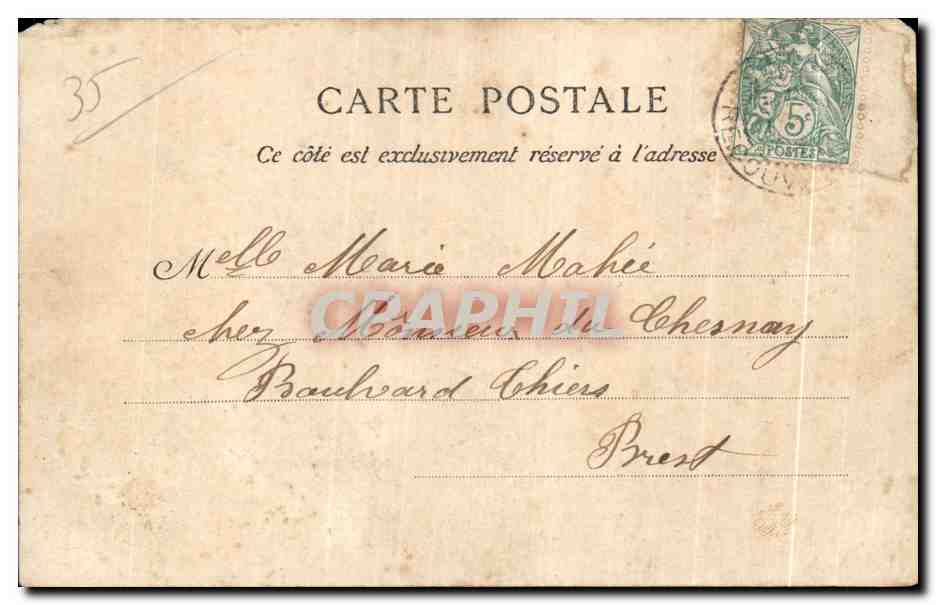 35
CARTE POSTALE
Ce côté est exclusivement réservé à l'adresse
5c
POSTES
Melle Marie Mahée
chez Monsieur du Chesnay
Boulvard Thiers
Brest
CPAPHIL